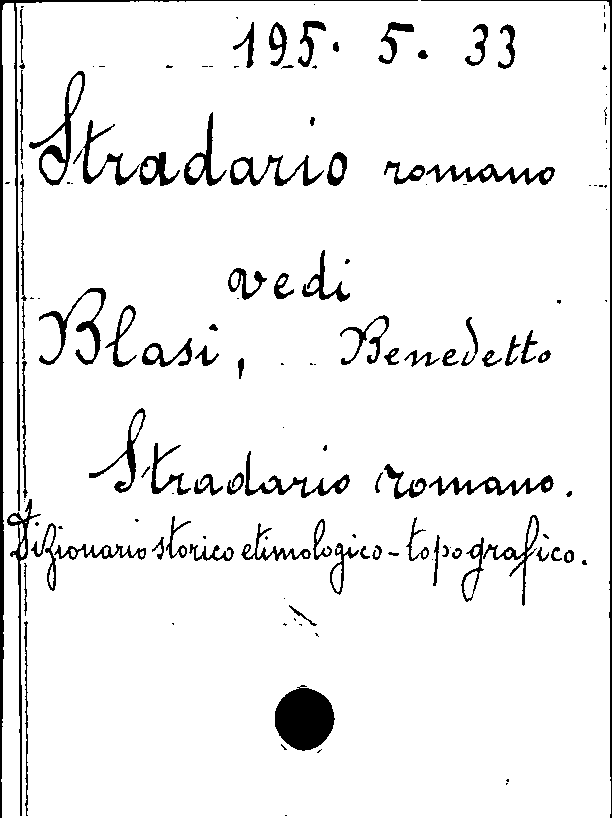 195. 5. 33
Stradario romano
vedi
Blasi, Benedetto
Stradario romano.
Dizionario storico etimologico-topografico.